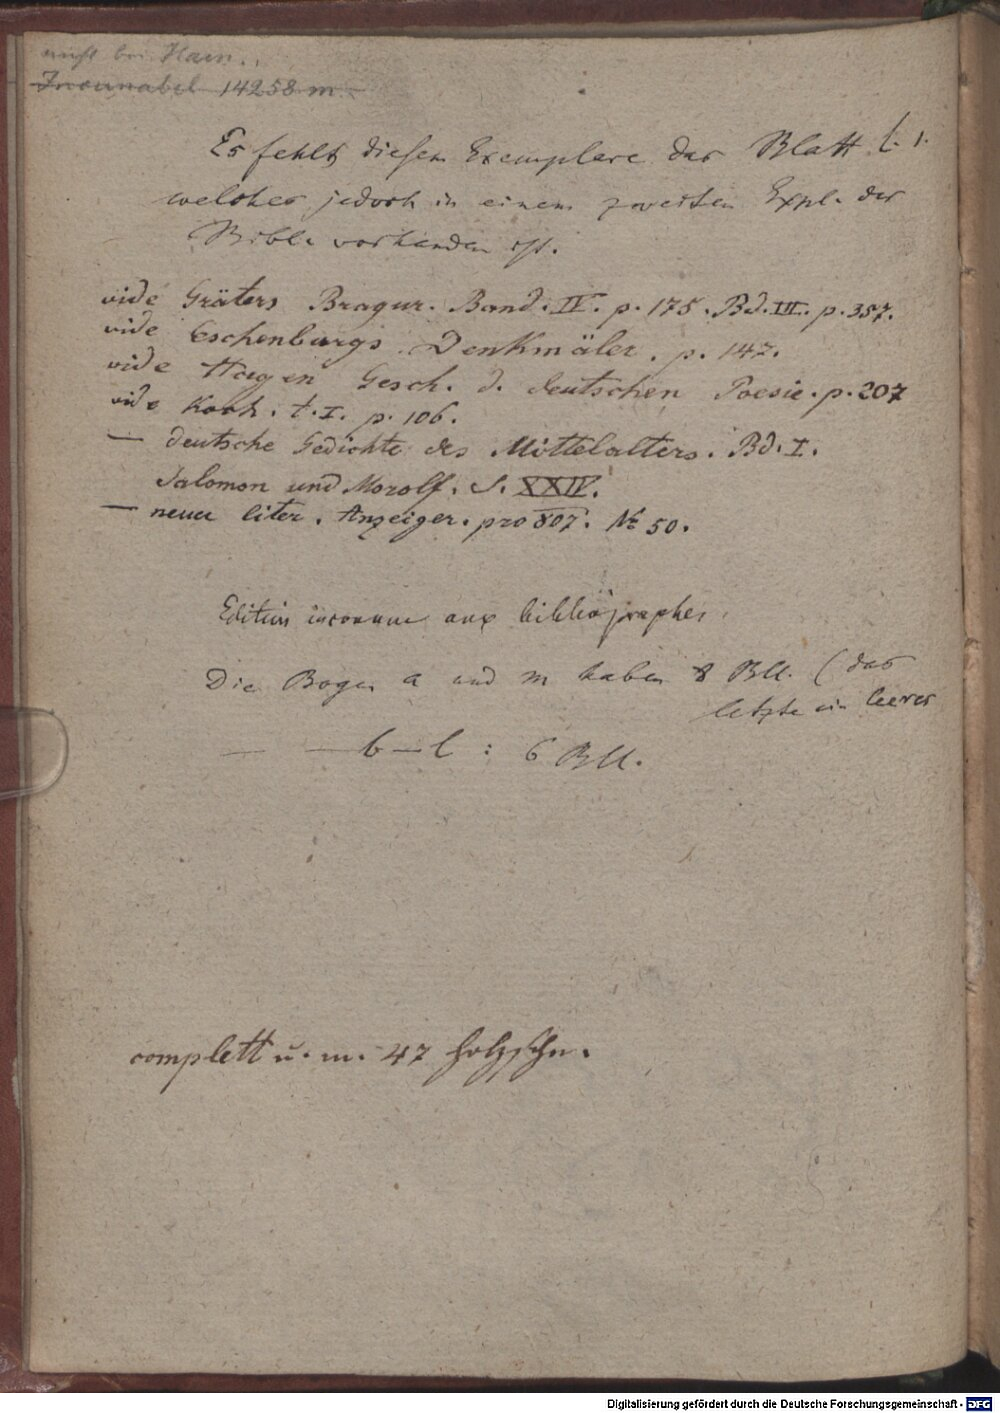 nicht bei Hain.
Incunabel 14258 m
Es fehlt diesem Exemplare das Blatt l. 1.
welches jedoch in einem zweiten Expl. der
Bibl. vorhanden ist.
vide Gräters Bragur. Band. IV. p. 175. Bd. III. p. 357.
vide Eschenburgs Denkmäler. p. 147.
vide Hagen Gesch. d. deutschen Poesie. p. 207
vide Koch. t. I. p. 106.
— deutsche Gedichte des Mittelalters. Bd. I.
Salomon und Morolf. S. XXIV.
— neuer liter. Anzeiger. pro 807. No 50.
Edition inconnue aux bibliographes.
Die Bogen a und m haben 8 Bll. (das
letzte ein leeres
— — b — l : 6 Bll.
complett u. m. 47 holzschn.
Digitalisierung gefördert durch die Deutsche Forschungsgemeinschaft - DFG